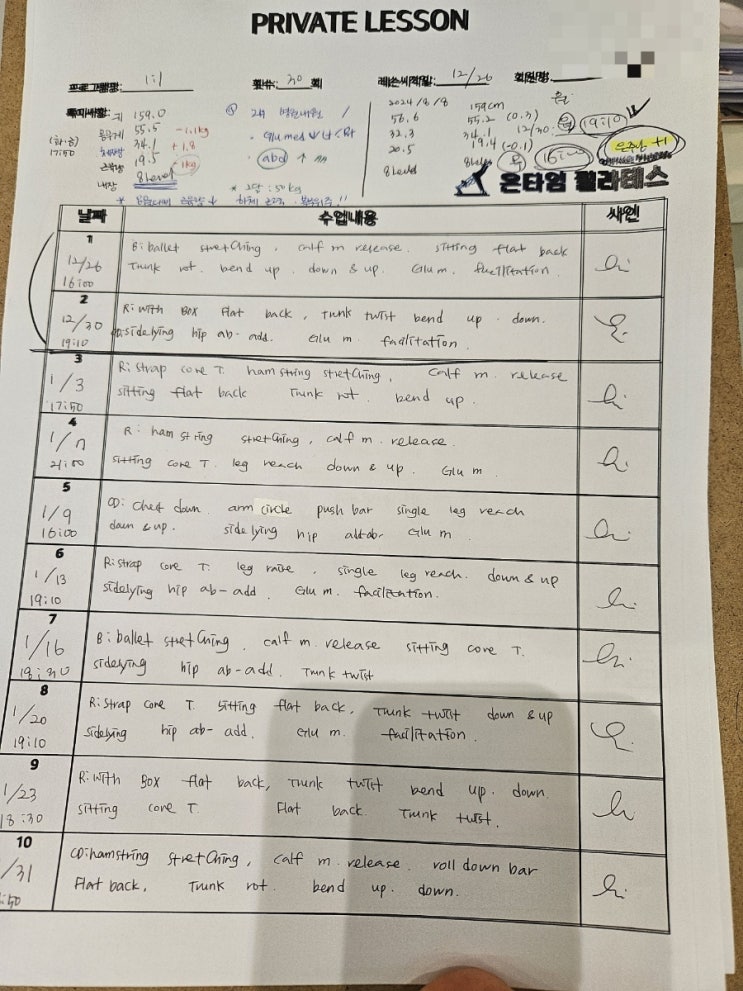 PRIVATE LESSON
프로그램명: 1:1 횟수: 30 회 레슨시작일: 12/26 회원명:
특이사항: 키 159.0
몸무게 55.5 -1.1kg
34.1 +1.8
19.5 -1kg
내장 8level
17:50
abd ↑
2024/8/8 159cm
56.6 55.2 (0.3) 12/30 19:10
32.3 34.1
20.5 19.4 (-0.1)
8level 8level
온타임 필라테스
날짜 수업내용 싸인
1
12/26
16:00
B: ballet stretching. calf m release. sitting flat back
Trunk rot. bend up. down & up. Glu m. facilitation.
2
12/30
19:10
R: with Box flat back, trunk twist bend up. down.
sidelying hip ab-add. Glu m. facilitation.
3
1/3
17:50
R: strap core T. hamstring stretching, calf m. release
sitting flat back Trunk rot. bend up.
4
1/7
21:00
R: hamstring stretching, calf m. release.
sitting core T. leg reach down & up. Glu m.
5
1/9
16:00
CD: Chest down. arm circle push bar single leg reach
down & up. sidelying hip Glu m.
6
1/13
19:10
R: strap core T. leg raise, single leg reach. down & up
sidelying hip ab-add. Glu m. facilitation.
7
1/16
18:30
B: ballet stretching. calf m. release sitting core T.
sidelying hip ab-add. Trunk twist
8
1/20
19:10
R: strap core T. sitting flat back, Trunk twist down & up
sidelying hip ab-add. Glu m. facilitation.
9
1/23
18:30
R: with Box flat back, trunk twist bend up. down.
sitting core T. Flat back. Trunk twist.
10
/31
:50
CD: hamstring stretching, calf m. release. roll down bar
Flat back, Trunk rot. bend up. down.